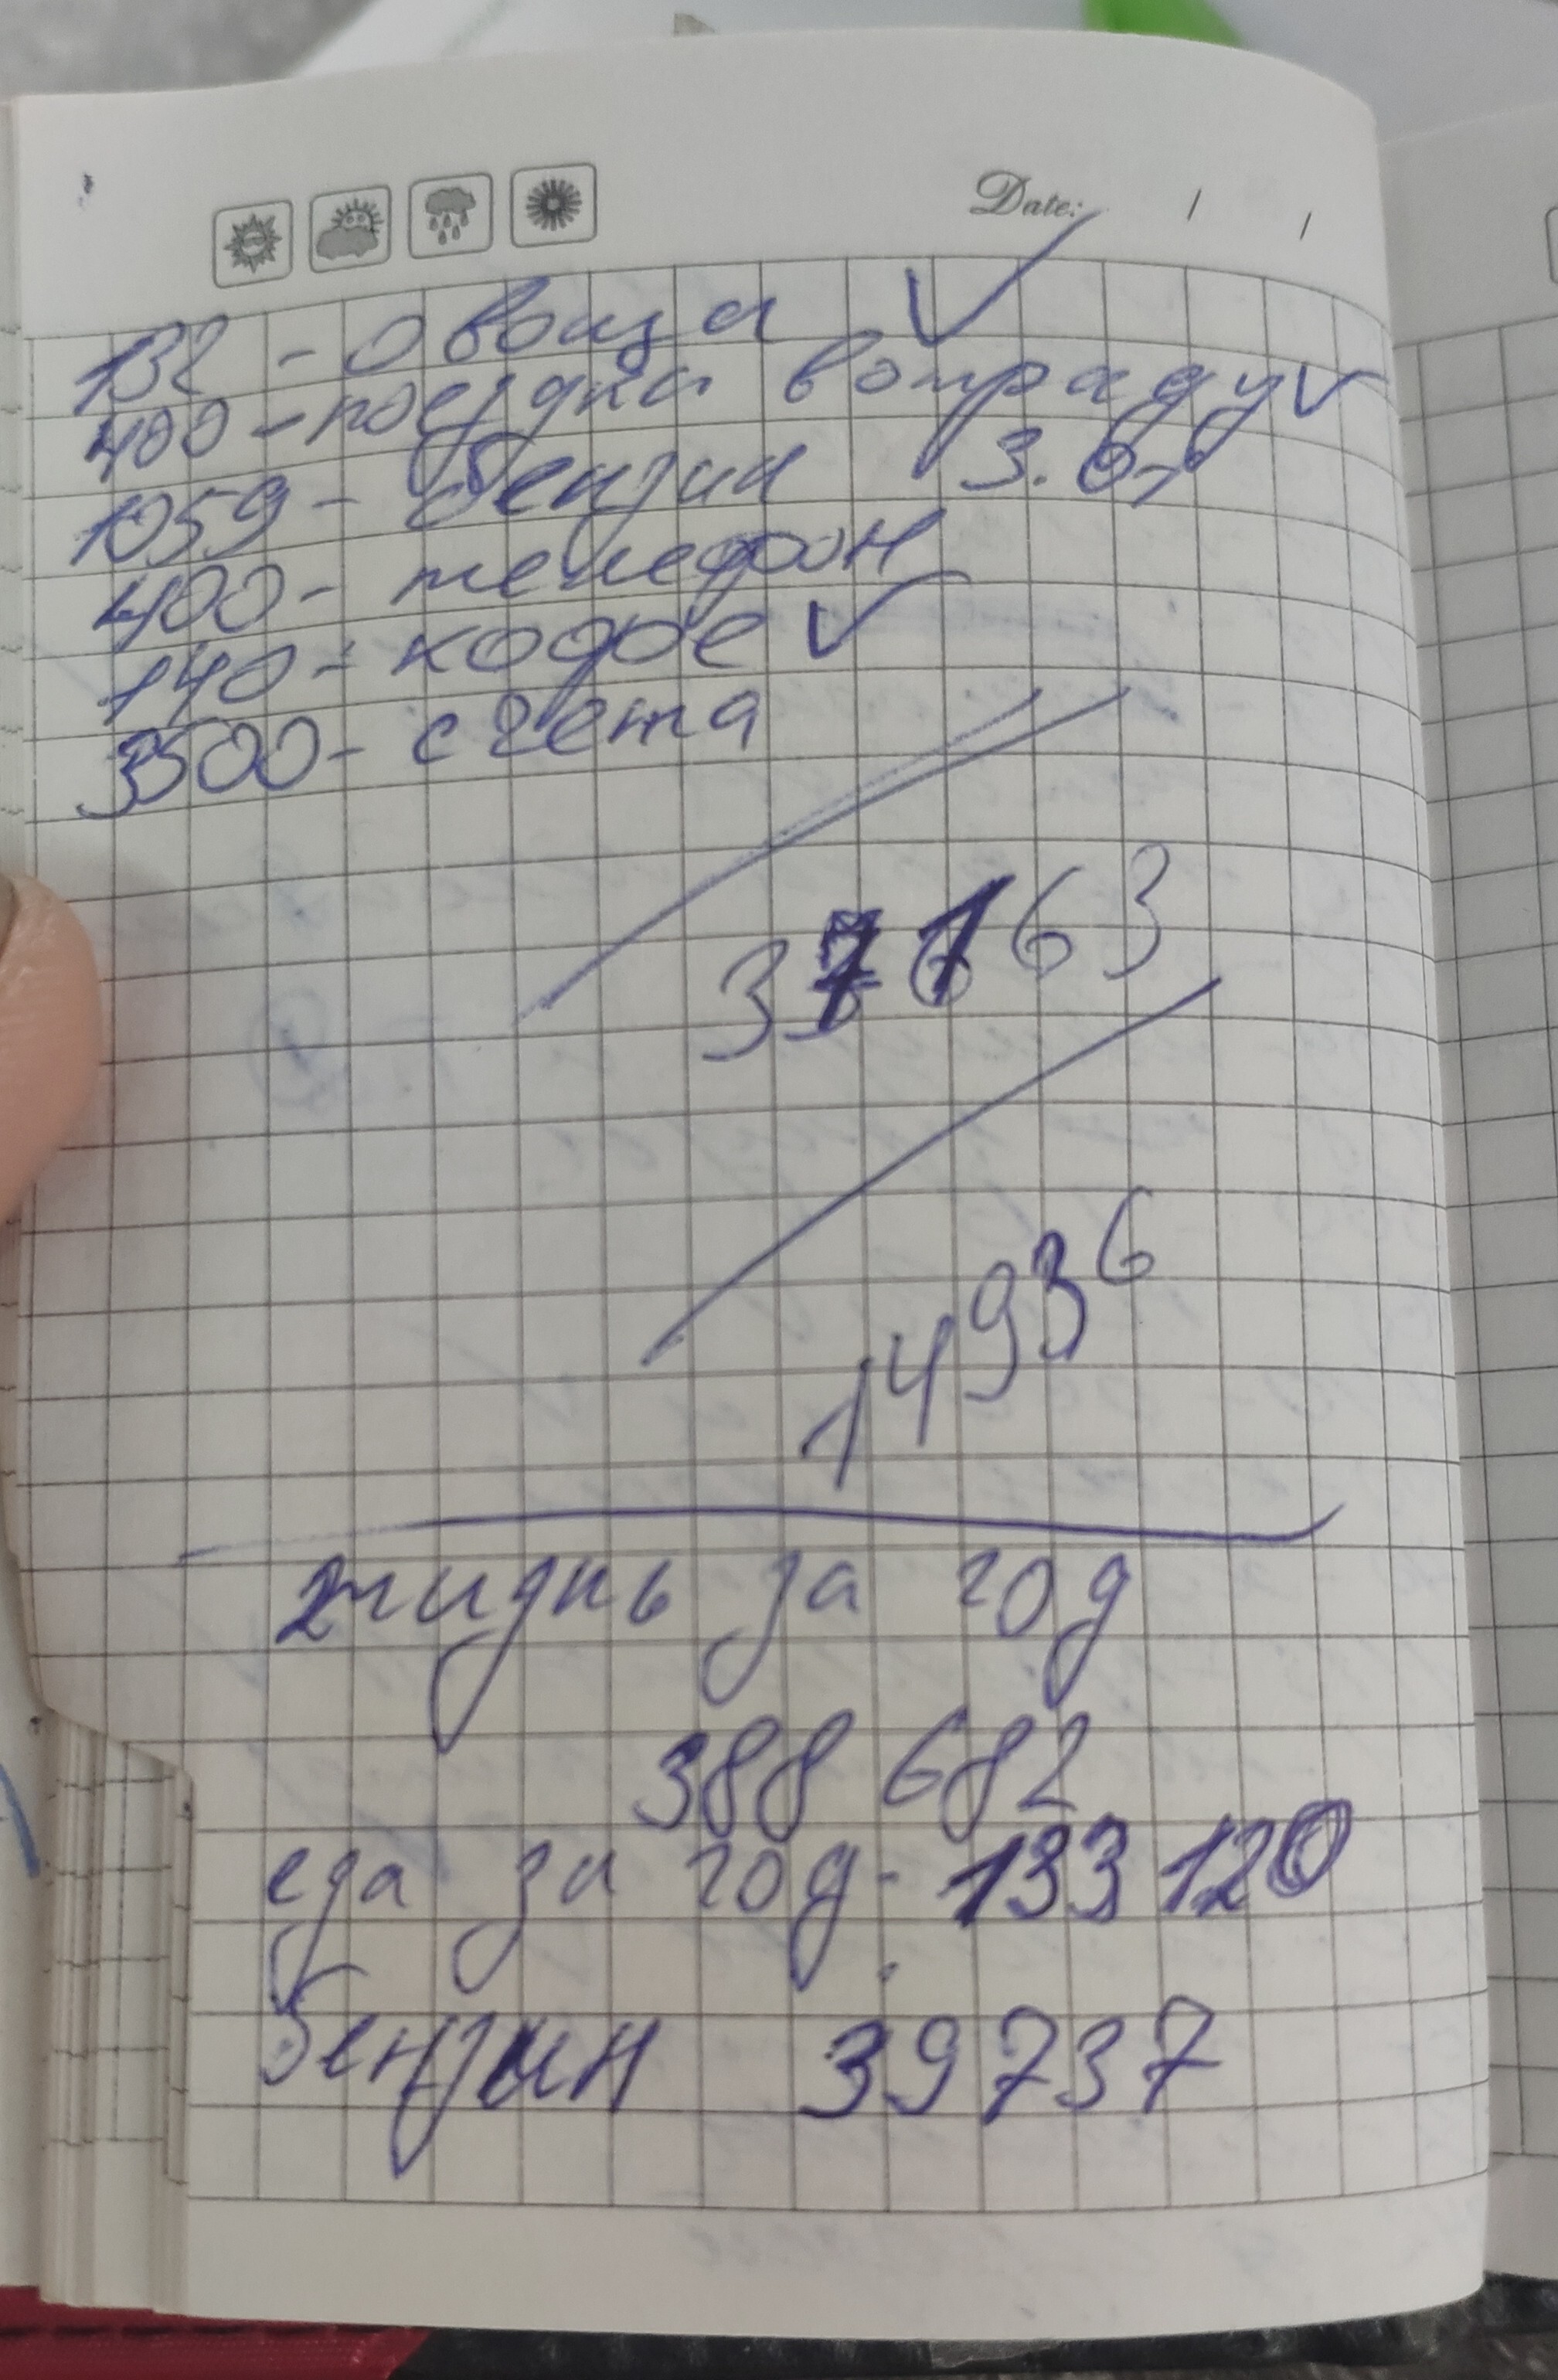 Date: / /
132 - овоща
400 - поездка в отраду
1059 - бензин 3.07
400 - телефон
140 - кофе
3500 - счета
37163
14936
жизнь за год
388 682
еда за год - 133 120
бензин 39737